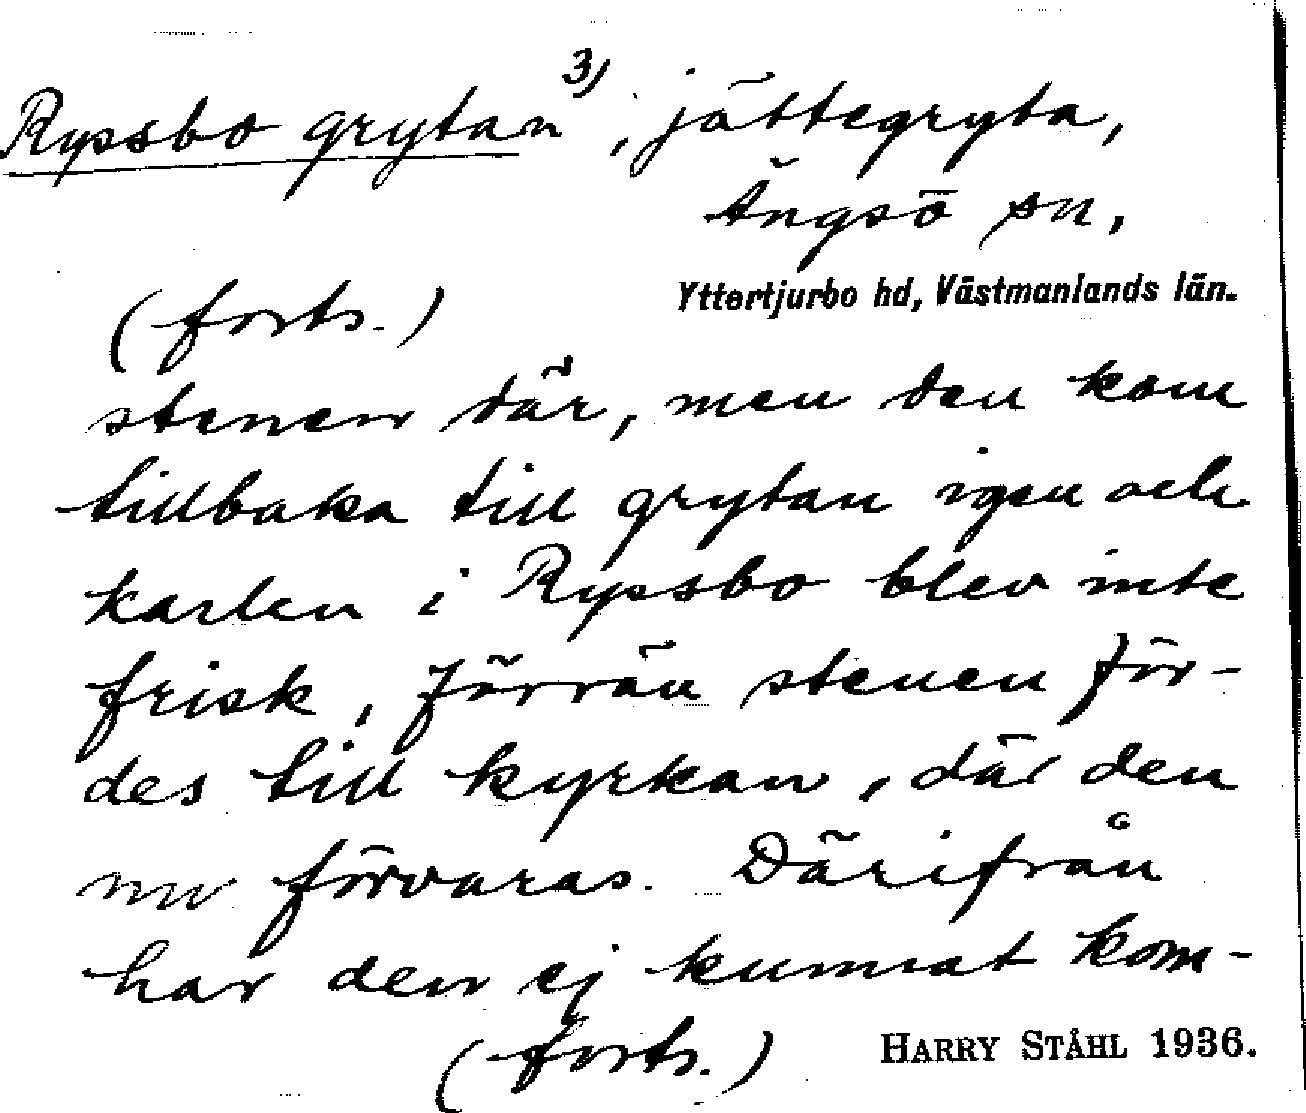 Ryssbo grytan 3), jättegryta,
Ängsö sn,
Yttertjurbo hd, Västmanlands län.
(forts.)
stenen där, men den kom
tillbaka till grytan igen och
karlen i Ryssbo blev inte
frisk, förrän stenen för-
des till kyrkan, där den
nu förvaras. Därifrån
har den ej kunnat kom-
(forts.)
HARRY STÅHL 1936.